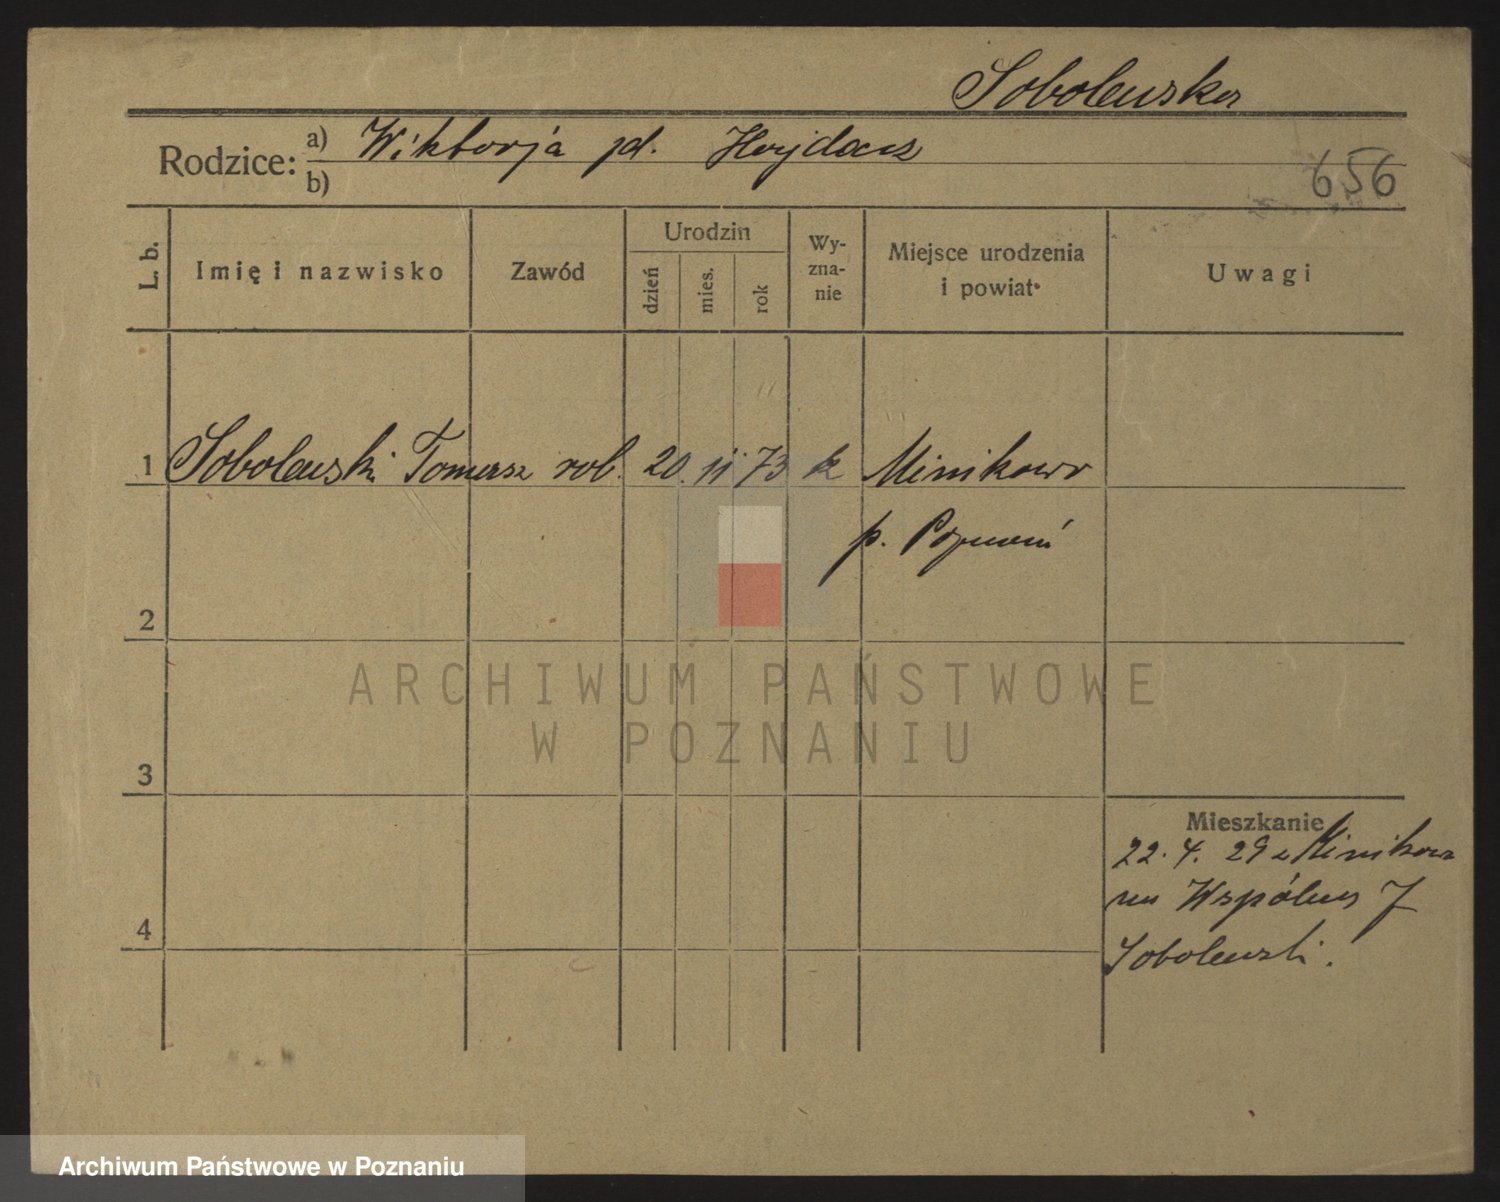 Sobolewska
Rodzice: a) Wiktorja
b)
656
L. b. Imię i nazwisko Zawód Urodzin dzień mies. rok Wyznanie Miejsce urodzenia i powiat Uwagi
1 Sobolewski Tomasz rob. 20. 11 73 k Minikowo
p. Poznań
2
ARCHIWUM PAŃSTWOWE
W POZNANIU
3
Mieszkanie
22. 4. 29 z Minikowa
na Wspólną 7
4
Sobolewski.
Archiwum Państwowe w Poznaniu